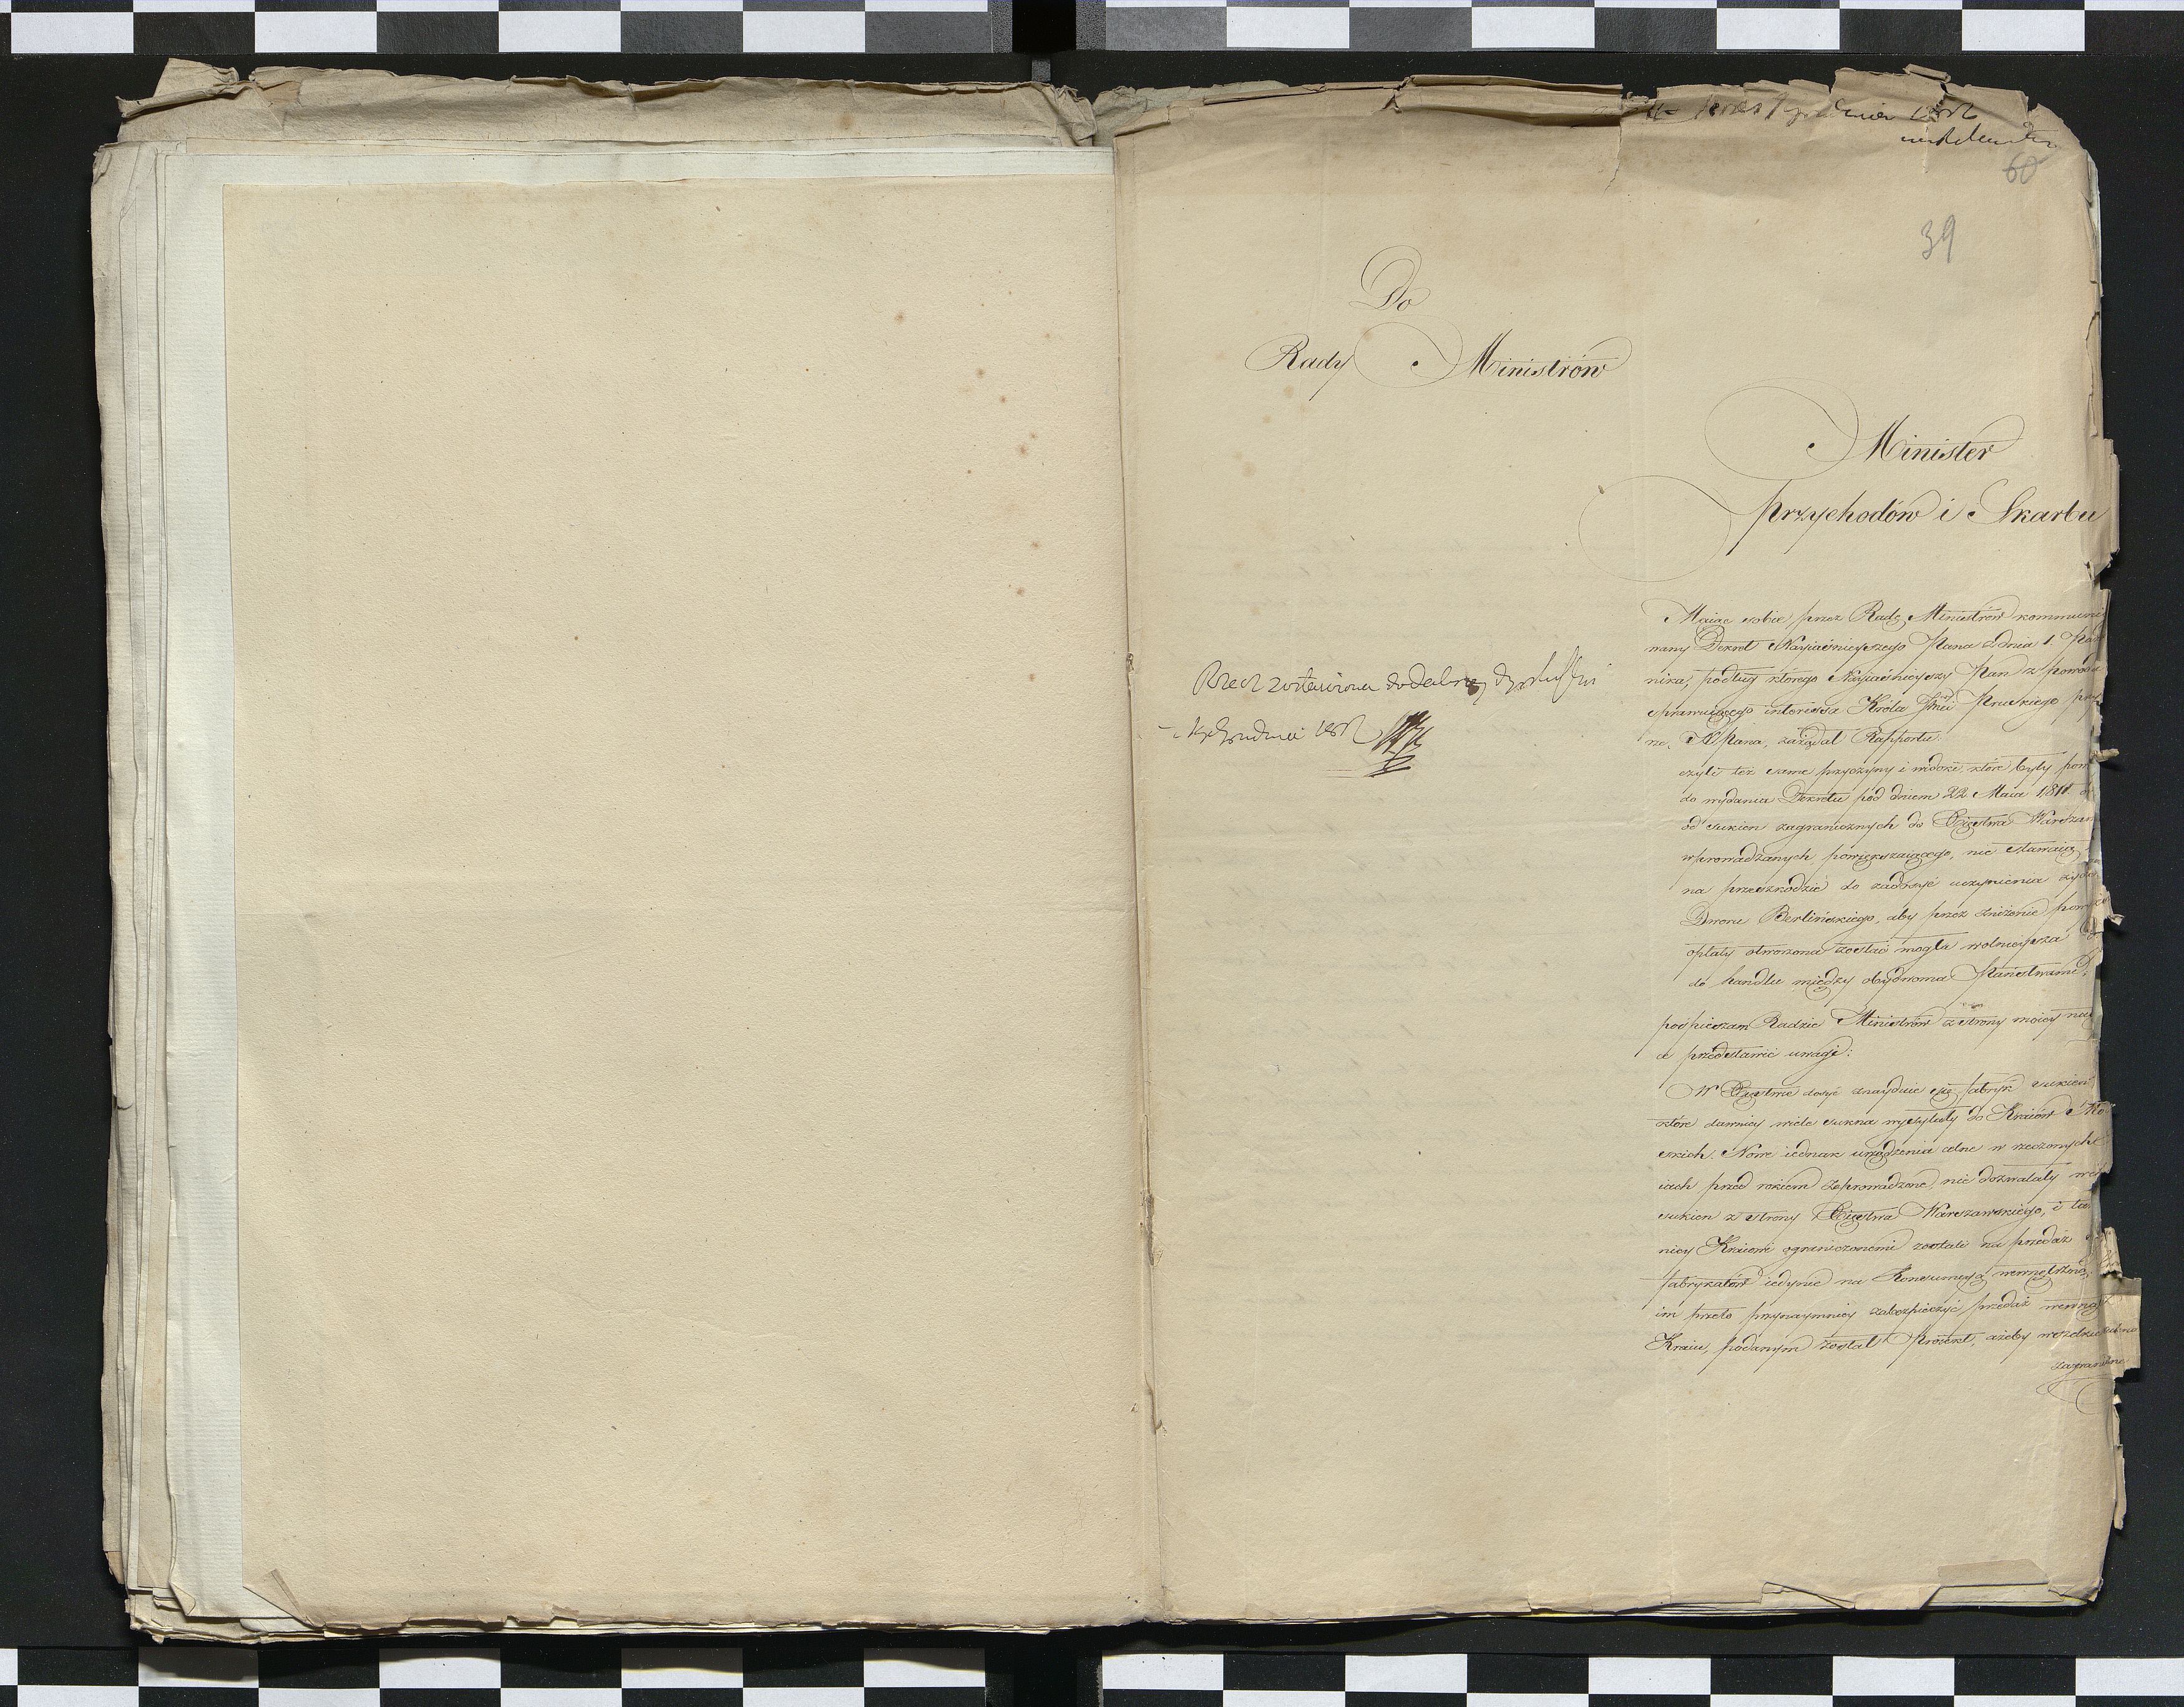 1812
60
39
Do
Rady Ministrów
Minister
przychodów i Skarbu
Rzecz zostawiona do dalszej dyskussyi
Grudnia 1812
Maiąc sobie przez Radę Ministrów kommuni
wany Dekret Nayiaśnieyszego Pana z dnia 1. Paź
nika, podług którego Nayiaśnieyszy Pan z powodu
sprawuiącego interessa Króla Jmci Pruskiego przy
N. Pana, zażądał Rapportu:
czyli też same przyczyny i widoki, które były pow
do wydania Dekretu pod dniem 22 Maia 1811.
od sukien zagranicznych do Xięstwa Warszaw
wprowadzanych powiększaiącego, nie stawaią
na przeszkodzie do zadosyć uczynienia żąda
Dworu Berlińskiego, aby przez zniżenie pom
opłaty otworzona zostać mogła wolnieysza
do handlu między obydwoma Państwami,
pośpieszam Radzie Ministrów z strony moiey na
ce przedstawić uwagi:
W Xięstwie dosyć znayduie się fabryk sukien
które dawniey wiele sukna wysyłały do Kraiów Ro
skich. Nowe iednak urządzenia celne w rzeczonych
iach przed rokiem zaprowadzone, nie dozwalały
sukien z strony Xięstwa Warszawskiego, i tu
nicy Kraiowi ograniczonemi zostali na przedaż
fabrykatów iedynie na Konsumcyą wewnętrzną
im przeto przynaymniey zabezpieczyć przedaż wewną
Kraiu, podanym został Proiekt, ażeby wszelkie sukna
zagraniczne